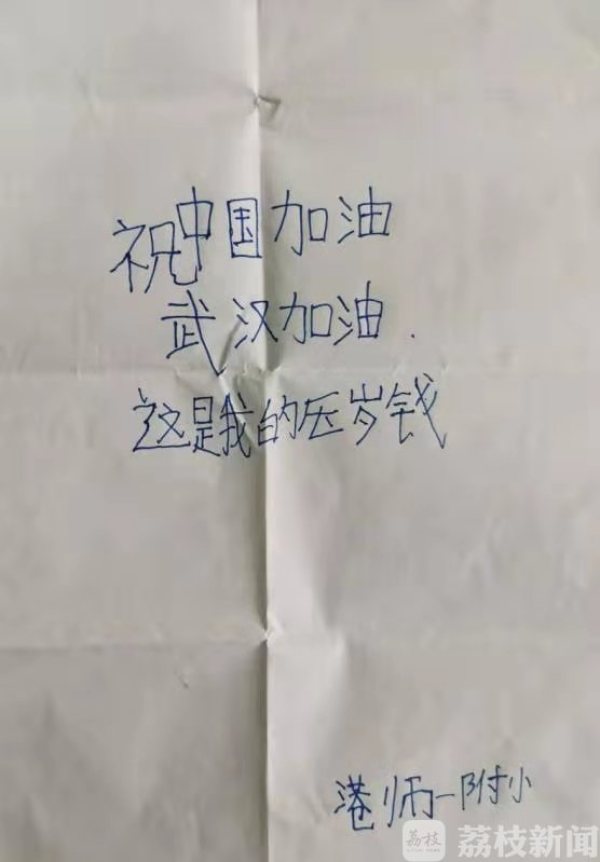 祝中国加油
武汉加油.
这是我的压岁钱
港师一附小
荔枝 荔枝新闻